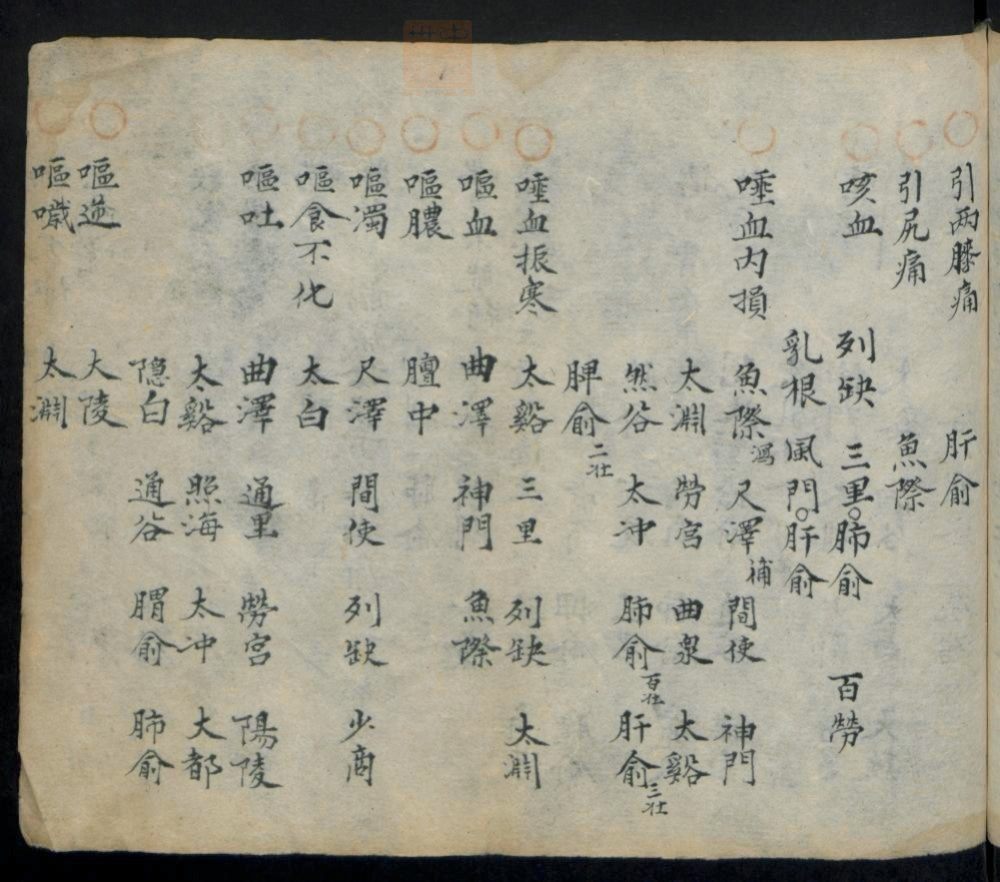 引两膝痛 肝俞
引尻痛 魚際
咳血 列缺 三里 肺俞 百勞
乳根 風門 肝俞
唾血内損 魚際瀉 尺澤補 間使 神門
太淵 勞宮 曲泉 太谿
然谷 太冲 肺俞百壮 肝俞三壮
脾俞二壮
唾血振寒 太谿 三里 列缺 太淵
嘔血 曲澤 神門 魚際
嘔膿 膻中
嘔濁 尺澤 間使 列缺 少商
嘔食不化 太白
嘔吐 曲澤 通里 勞宮 陽陵
太谿 照海 太冲 大都
隐白 通谷 胃俞 肺俞
嘔逆 大陵
嘔噦 太淵